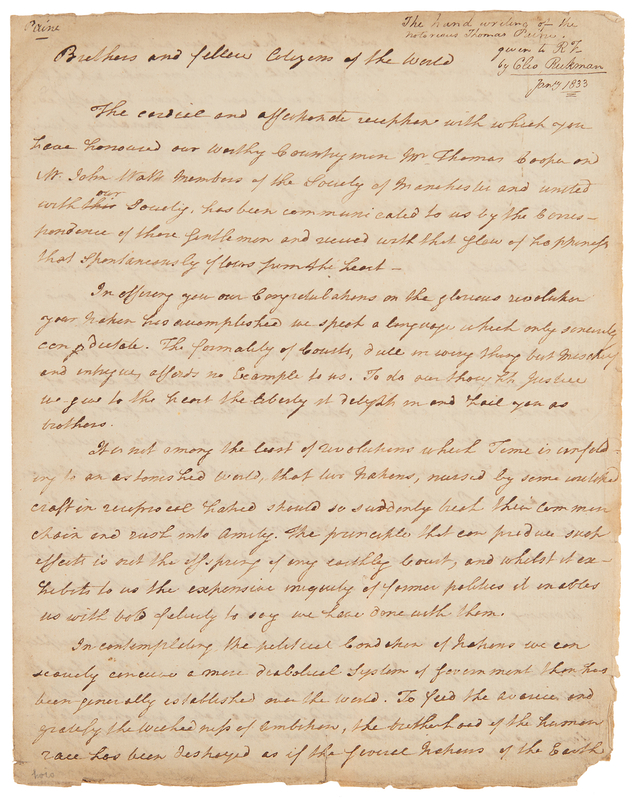 Paine
The hand writing of the
notorious Thomas Paine.
given to R F
by Clio Rickman
Jany 1833
Brothers and fellow Citizens of the World
The cordial and affectionate reception with which you
have honoured our worthy Countrymen Mr Thomas Cooper and
Mr. John Watt Members of the Society of Manchester and united
with this our Society, has been communicated to us by the Corres-
pondence of those Gentlemen and viewed with that Glow of happiness
that Spontaneously flows from the heart –
In offering you our Congratulations on the glorious revolution
your Nation has accomplished we speak a language which only sincerity
can dictate. The formality of Courts, dull in every thing but Mischief
and intrigue, affords no Example to us. To do our thoughts Justice
we give to the heart the liberty it delights in and hail you as
brothers.
It is not among the least of revolutions which Time is unfold-
ing to an astonished World, that two Nations, nursed by some wretched
craft in reciprocal hatred should so suddenly break their common
chain and rush into Amity. The principle that can produce such
effects is not the offspring of any earthly Court, and whilst it ex-
hibits to us the expensive iniquity of former politics it enables
us with bold felicity to say we have done with them.
In contemplating the political Condition of Nations we can
scarcely conceive a more diabolical System of Government than has
been generally established over the world. To feed the avarice and
gratify the wickedness of Ambition, the brotherhood of the human
race has been destroyed as if the several Nations of the Earth